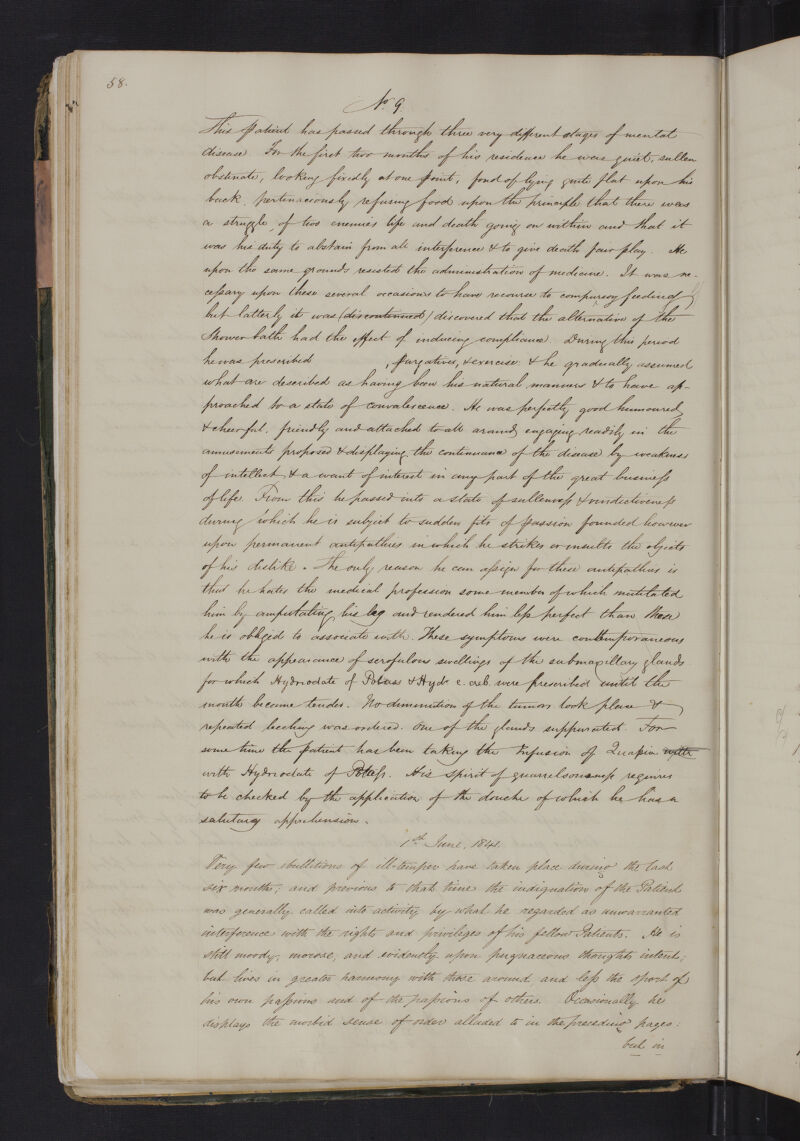 58.
No. 9
This Patient has passed through three very different stages of mental
disease For the first two months of his residence he was quiet, sullen
obstinate, looking fixedly at one point, fond of lying quite flat upon his
back. pertinaciously refusing food upon the principle that there was
a struggle of two enemies life and death going on within and that it
was his duty to abstain from all interference & to give death fair play. He
upon the same grounds resisted the administration of medicine. It was ne-
cessary upon these several occasions to have recourse to compulsory feeding
but latterly it was (discontinued) discovered that the alternative of the
Shower bath had the effect of inducing compliance. During this period
he was prescribed , purgatives, & exercise: & he gradually assumed
what are described as having been his natural manners & to have ap-
proached to a state of convalescence. He was perfectly good humoured
& cheerful. friendly and attached to all around, engaging readily in the
amusements proposed & displaying the continuance of the disease by weakness
of intellect & a want of interest in any part of the great business
of life From this he passed into a state of sullenness & vindictiveness
during which he is subject to sudden fits of passion founded however
upon permanent antipathies in which he strikes or insults the objects
of his dislike. The only reason he can assign for these antipathies is
that he hates the medical profession some member of which mutilated
him by amputating his leg and rendered him less perfect than those
he is obliged to associate with. These symptoms were contemporaneous
with the appearance of scrofulous swellings of the submaxillary glands
for which Hydriodate of Potass & Hyd. c. creb were prescribed until the
mouth became tender. No diminution of the tumors took place &
repeated leeching was ordered. One of the glands suppurated. For
some time the patient has been taking the Infusion of Quassia
with Hydriodate of Potass. His spirit of quarrelsomeness requires
to be checked by the application of the douche of which he has a
salutary apprehension.
1st June, 1841.
Very few ebullitions of ill-temper have taken place during the last
six months; and previous to that time the indignation of the Patient
was generally called into activity by what he regarded as unwarranted
interference with the rights and privileges of his fellow Patients. He is
still moody, morose, and evidently upon pugnacious thoughts intent;
but lives in greater harmony with those around and less the sport of
his own passions and of the passions of others. Occasionally he
displays the morbid sense of order alluded to in the preceding pages:
but in